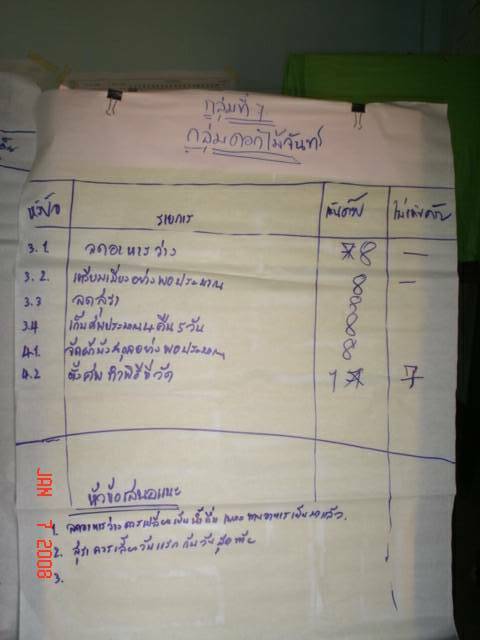 กลุ่มที่ 7
กลุ่มดอกไม้จันทร์
หัวข้อ รายการ เห็นด้วย ไม่เห็นด้วย
3.1 ลดอาหารว่าง 8 —
3.2. เตรียมเลี้ยงอย่างพอประมาณ 8 —
3.3 ลดสุรา 8
3.4 เก็บศพประมาณ 4 คืน 5 วัน 8
4.1. จัดผ้าบังสกุลอย่างพอประมาณ 8
4.2 ตั้งศพทำพิธีที่วัด 1 7
หัวข้อเสนอแนะ
1. ลดอาหารว่างควรเปลี่ยนเป็นน้ำดื่ม เพราะทานอาหารเย็นมาแล้ว.
2. สุราควรเลี้ยงวันแรกกับวันสุดท้าย
3.
JAN 7 2008